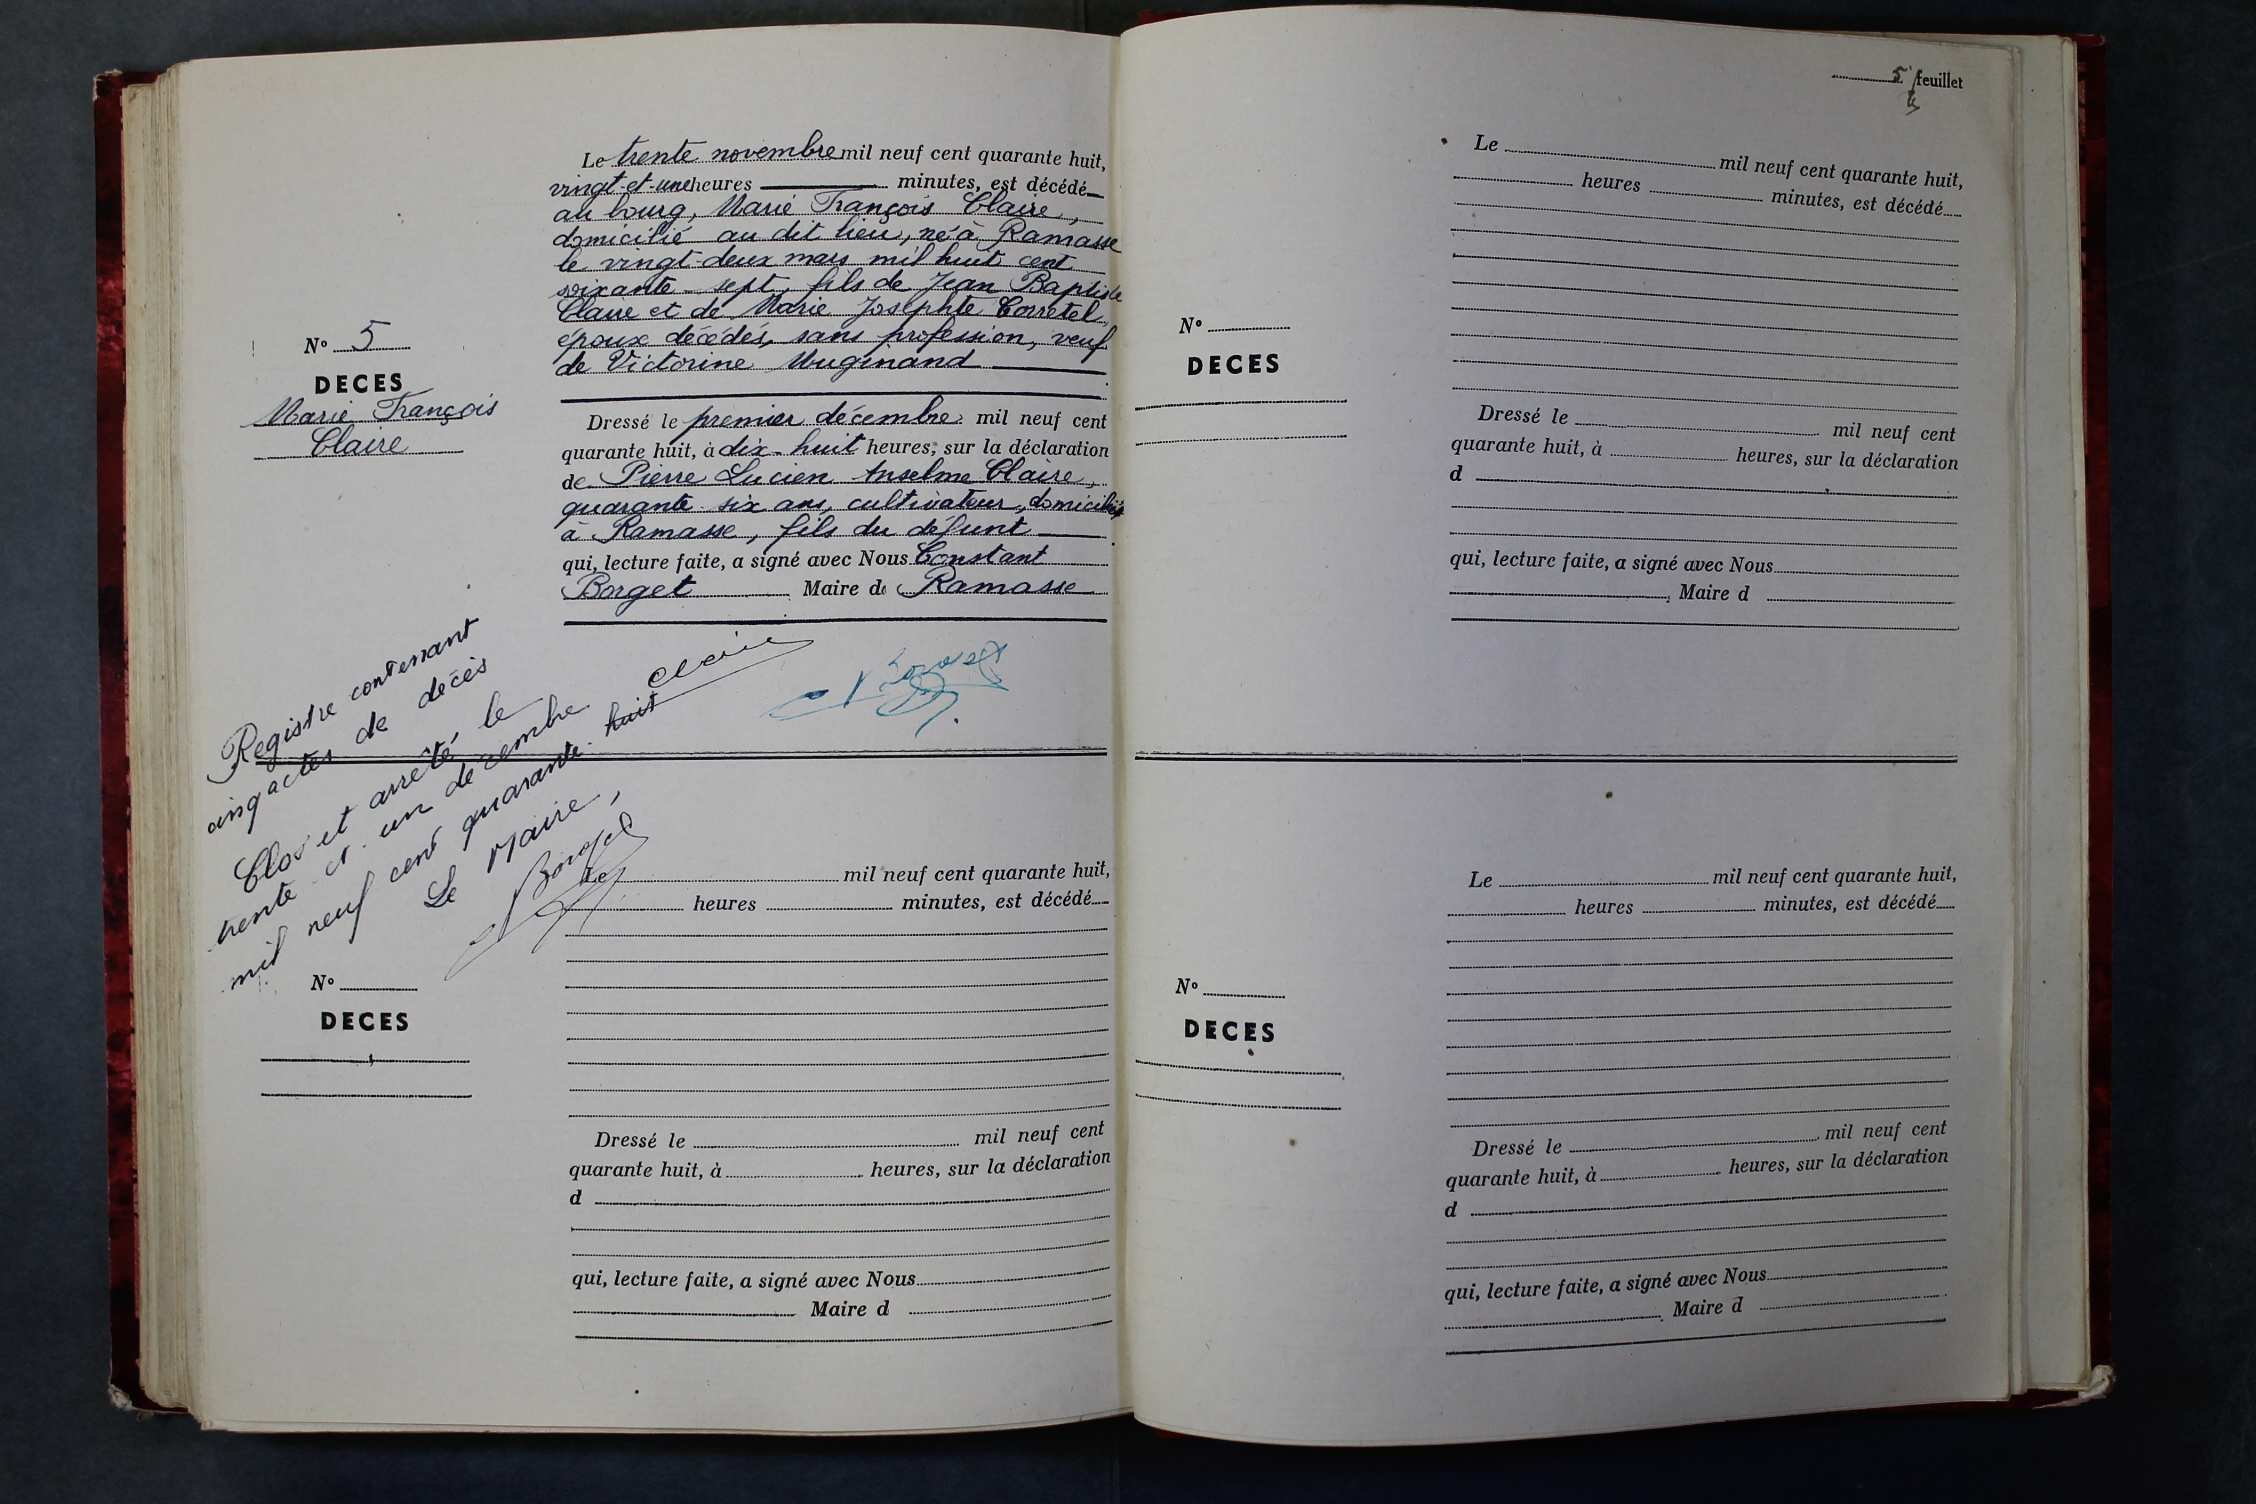 Le trente novembre mil neuf cent quarante huit,
vingt-et-une heures minutes, est décédé
au bourg, Marie François Claire,
domicilié au dit lieu, né à Ramasse
le vingt-deux mars mil huit cent
soixante-sept, fils de Jean Baptiste
Claire et de Marie Josephte Corretel,
époux décédés, sans profession, veuf
de Victorine Muginand
N° 5
DECES
Marie François
Claire
Dressé le premier décembre mil neuf cent
quarante huit, à dix-huit heures, sur la déclaration
de Pierre Lucien Anselme Claire,
quarante-six ans, cultivateur, domicilié
à Ramasse, fils du défunt
qui, lecture faite, a signé avec Nous Constant
Borget Maire de Ramasse
Claire
Borget
Registre contenant
cinq actes de décès
Clos et arrêté le
trente et un décembre
mil neuf cent quarante-huit
Le Maire,
Borget
Le mil neuf cent quarante huit,
heures minutes, est décédé
N°
DECES
Dressé le mil neuf cent
quarante huit, à heures, sur la déclaration
d
qui, lecture faite, a signé avec Nous
Maire d
5 feuillet
Le mil neuf cent quarante huit,
heures minutes, est décédé
N°
DECES
Dressé le mil neuf cent
quarante huit, à heures, sur la déclaration
d
qui, lecture faite, a signé avec Nous
Maire d
Le mil neuf cent quarante huit,
heures minutes, est décédé
N°
DECES
Dressé le mil neuf cent
quarante huit, à heures, sur la déclaration
d
qui, lecture faite, a signé avec Nous
Maire d